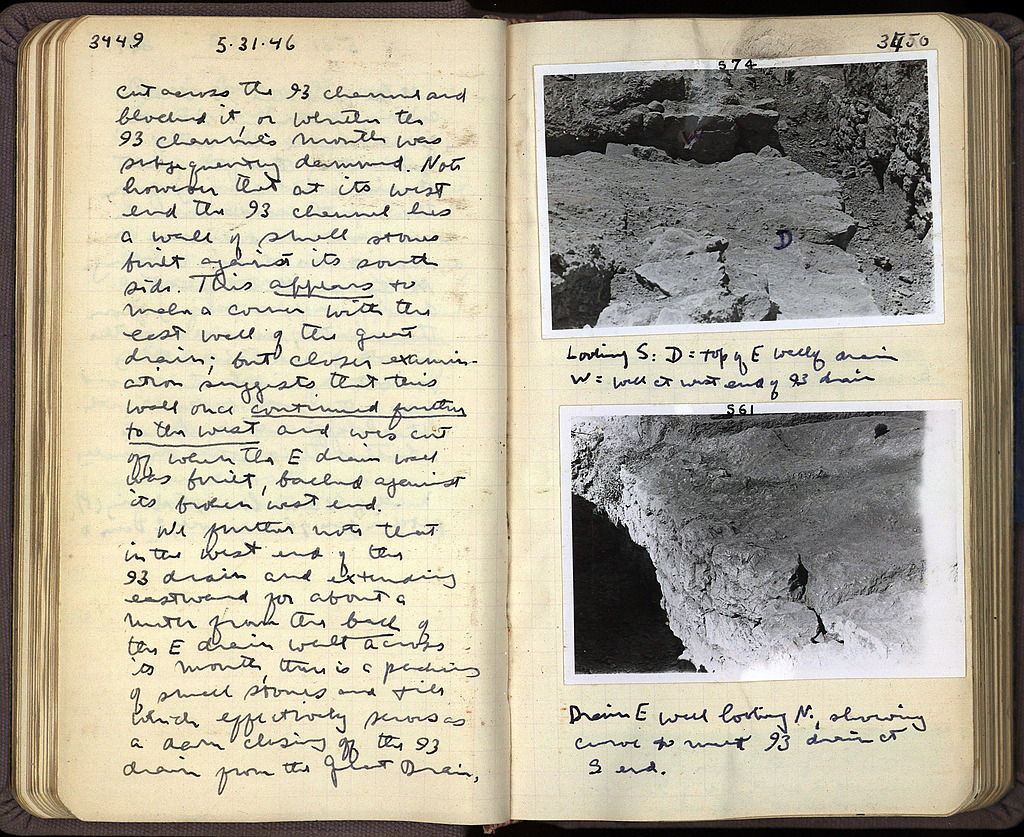 3449 5·31·46
cut across the 93 channel and
blocked it, or whether the
93 channel's mouth was
subsequently dammed. Note
however that at its west
end the 93 channel has
a wall of small stones
built against its south
side. This appears to
make a corner with the
east wall of the great
drain; but closer examin-
ation suggests that this
wall once continued further
to the west and was cut
off when the E drain wall
was built, backed against
its broken west end.
We further note that
in the west end of the
93 drain and extending
eastward for about a
meter from the back of
the E drain wall across
its mouth, there is a packing
of small stones and fill
which effectively serves as
a dam closing off the 93
drain from the Great Drain,
3450
574
W
D
Looking S: D = top of E wall of drain
W = wall at west end of 93 drain
561
Drain E wall looking N., showing
curve to meet 93 drain at
S end.